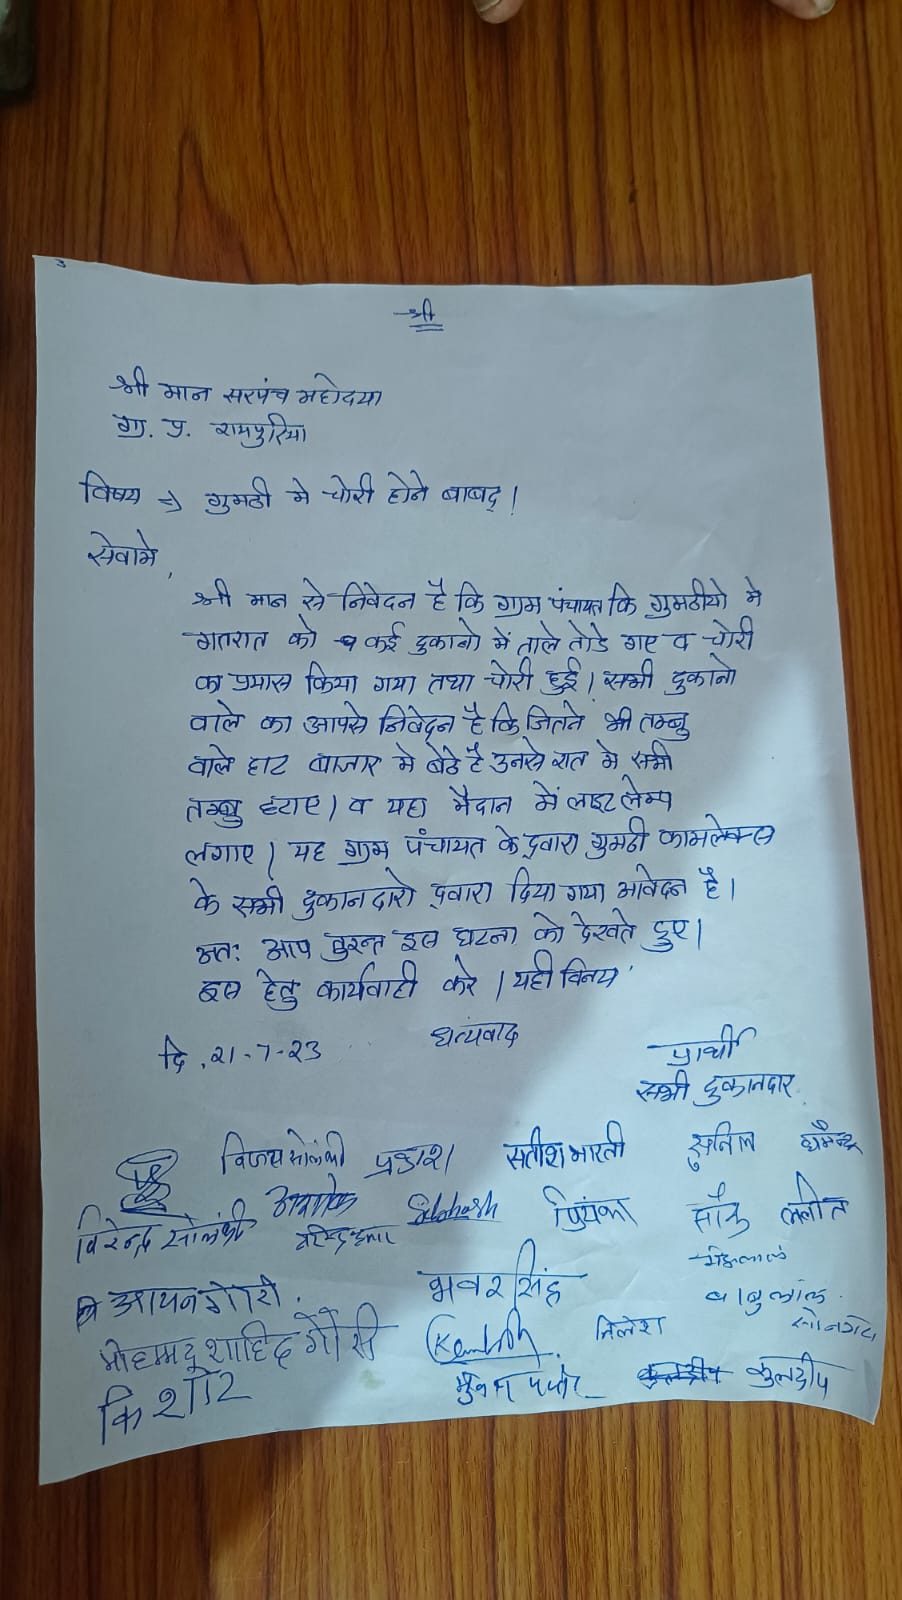 श्री
श्री मान सरपंच महोदया
ग्रा. प. रामपुरिया
विषय => गुमठी मे चोरी होने बाबद्।
सेवामे,
श्री मान से निवेदन है कि ग्राम पंचायत कि गुमठीयो मे
गतरात को कई दुकानो में ताले तोडे गए व चोरी
का प्रयास किया गया तथा चोरी हुई। सभी दुकानो
वाले का आपसे निवेदन है कि जितने भी तम्बु
वाले हाट बाजार मे बेठे है उनसे रात मे सभी
तम्बु हटाए। व यहा मैदान में लाइट लेम्प
लगाए। यह ग्राम पंचायत के द्वारा गुमठी कामलेक्स
के सभी दुकानदारो द्वारा दिया गया आवेदन है।
अतः आप तुरन्त इस घटना को देखते हुए।
इस हेतु कार्यवाही करे। यही विनय
धत्यवाद
दि. 21-7-23
प्रार्थी
सभी दुकानदार
विजय सोलंकी प्रकाश सतीश भारती सुनिल धर्मेन्द्र
विरेन्द्र सोलंकी Subhash प्रियंका ललीत
आयन गोरी. भवरसिंह
बाबुलाल
मोहम्मद शाहिद गौरी निलेश
किशोर कुलदीप